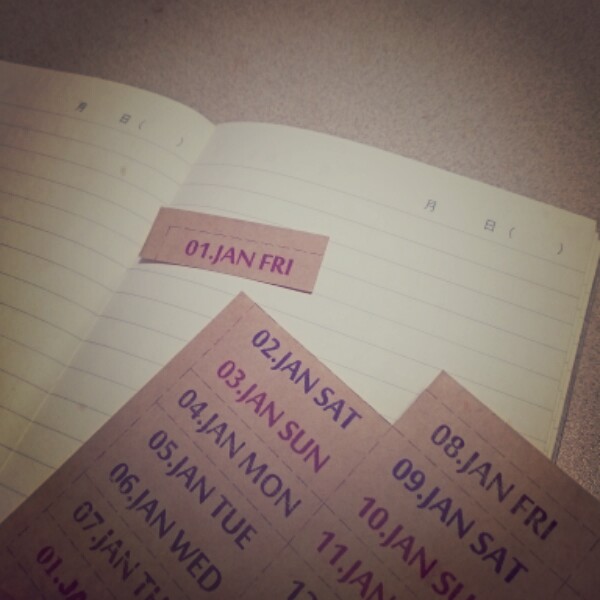 月 日( )
月 日( )
01.JAN FRI
02.JAN SAT
03.JAN SUN
04.JAN MON
05.JAN TUE
06.JAN WED
07.JAN
08.JAN FRI
09.JAN SAT
10.JAN
11.JAN